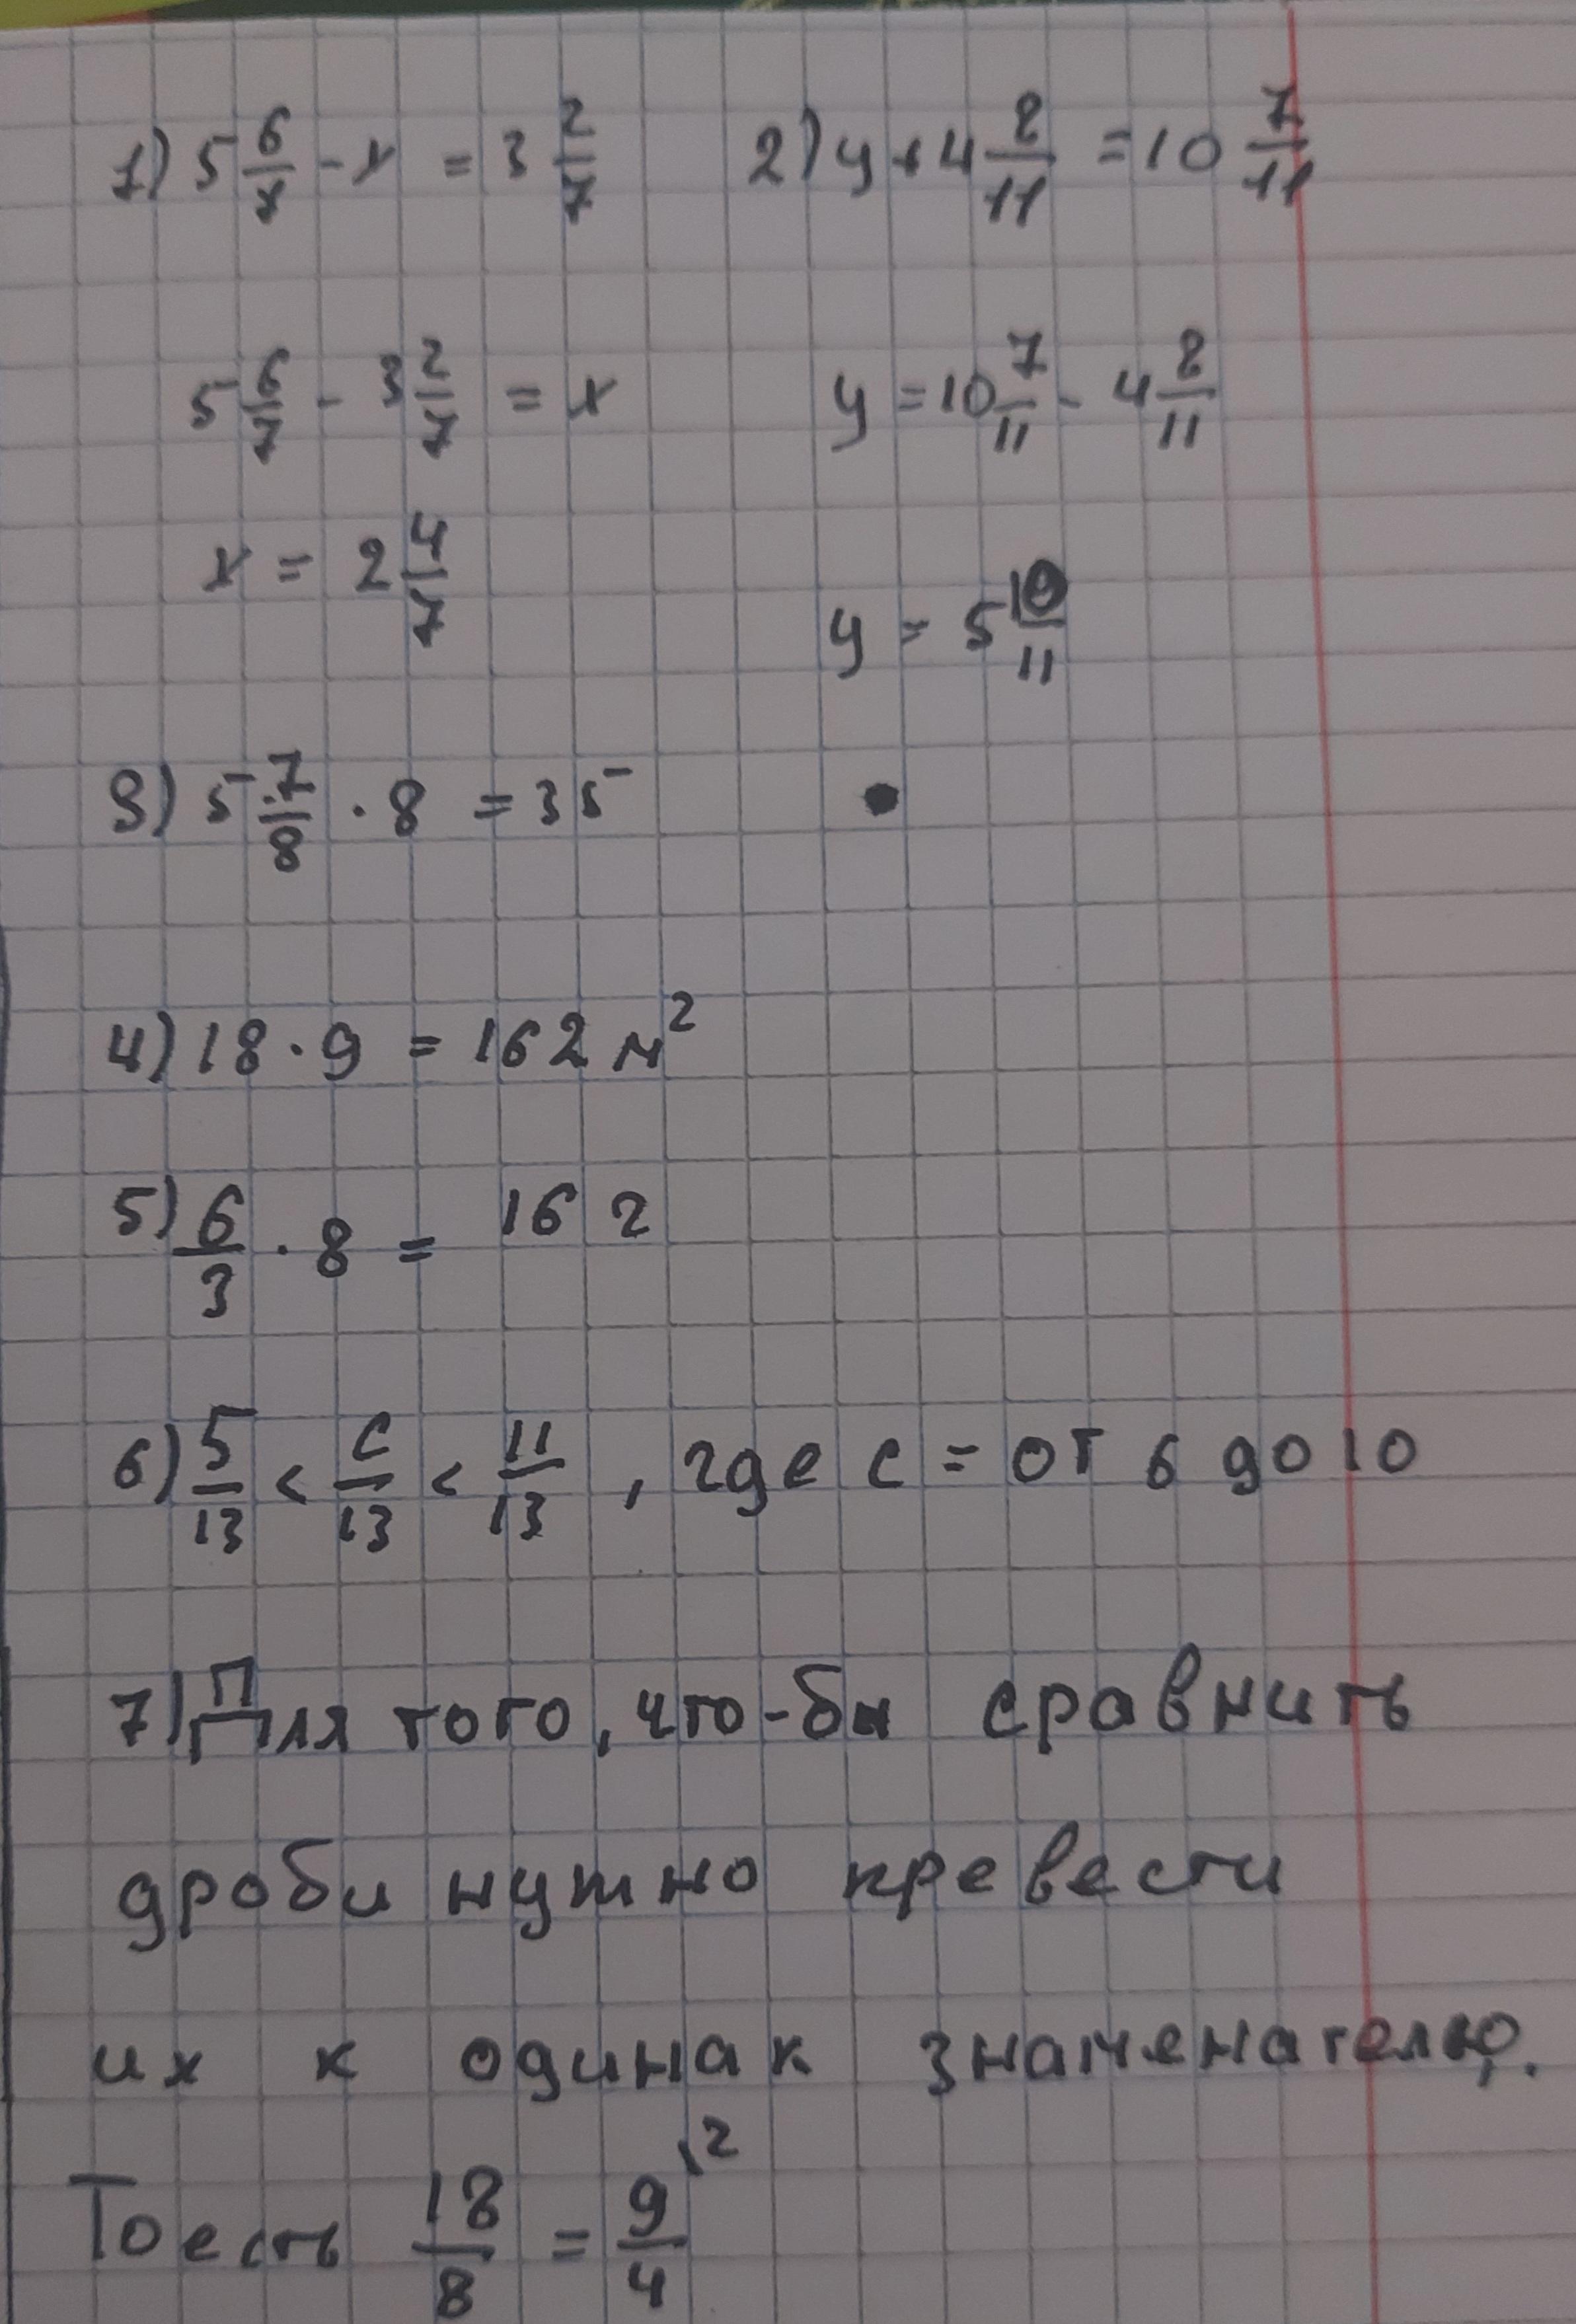 1) 5 6/7 - x = 3 2/7 2) y + 4 8/11 = 10 7/11
5 6/7 - 3 2/7 = x y = 10 7/11 - 4 8/11
x = 2 4/7 y = 5 10/11
3) 5 7/8 · 8 = 35
4) 18 · 9 = 162 м²
5) 6/3 · 8 = 16 г
6) 5/13 < c/13 < 11/13 , где c = от 6 до 10
7) Для того, что-бы сравнить
дроби нужно превести
их к одинак знаменателю.
То есть 18/8 = 9/4 \2